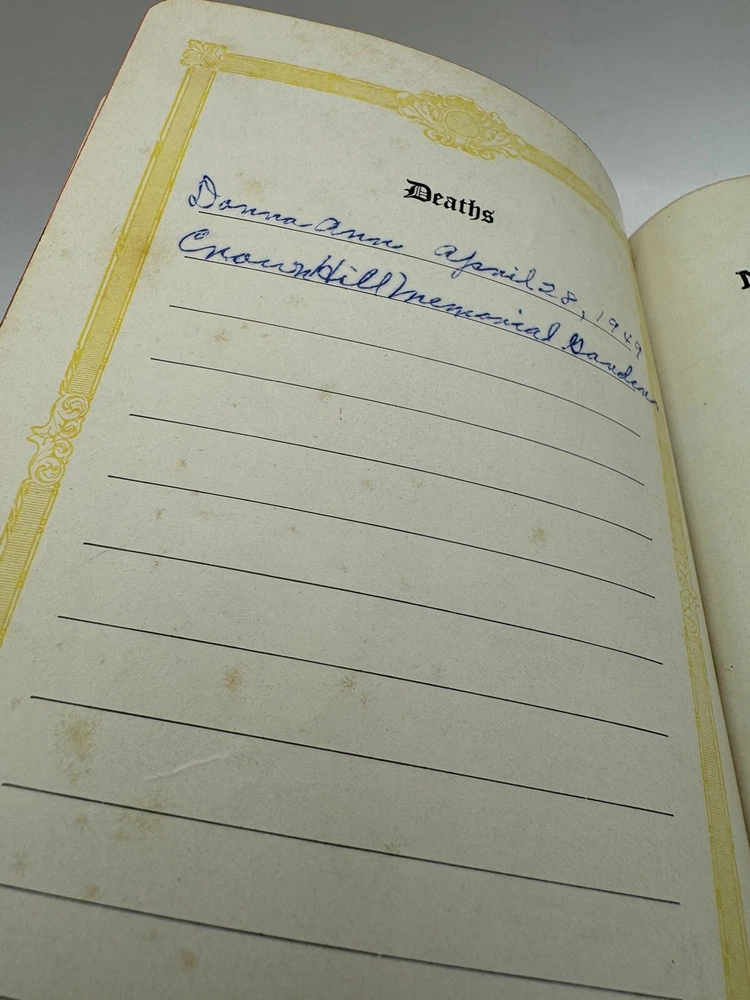 Deaths
Donna Ann April 28, 1949
Crown Hill Memorial Gardens